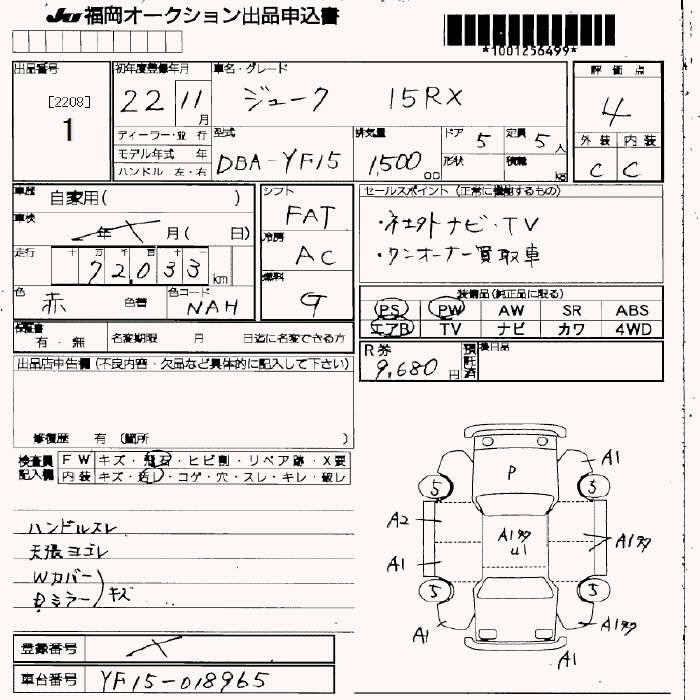 JU 福岡オークション出品申込書
*1001256499*
出品番号
[2208]
1
初年度登録年月
22 11月
車名・グレード
ジューク 15RX
評価点
4
外装 内装
C C
ディーラー・並行
モデル年式 年
ハンドル 左・右
型式
DBA-YF15
排気量
1,500 cc
ドア 5
形状
定員 5人
積載 kg
車歴 自家用( )
車検 年 月( 日)
走行 十 万 千 百 十 一
72,033 km
色 赤 色替
色コード NAH
シフト
FAT
冷房
AC
燃料
G
セールスポイント (正常に機能するもの)
・ナビ・TV
・ワンオーナー買取車
装備品(純正品に限る)
PS PW AW SR ABS
エアB TV ナビ カワ 4WD
保証書
有・無
名変期限 月 日迄に名変できる方
R券
9,680円
預託済
後日品
出品店申告欄(不良内容・欠品など具体的に記入して下さい)
修復歴 有 (箇所 )
検査員記入欄
FW キズ・飛石・ヒビ割・リペア跡・X要
内装 キズ・汚レ・コゲ・穴・スレ・キレ・破レ
ハンドルスレ
天張ヨゴレ
Wカバー
ミラー キズ
P
A1
5 5
A2
A1
A1
U1
A1
5 5
A1
A1
A1
登録番号
車台番号 YF15-018965